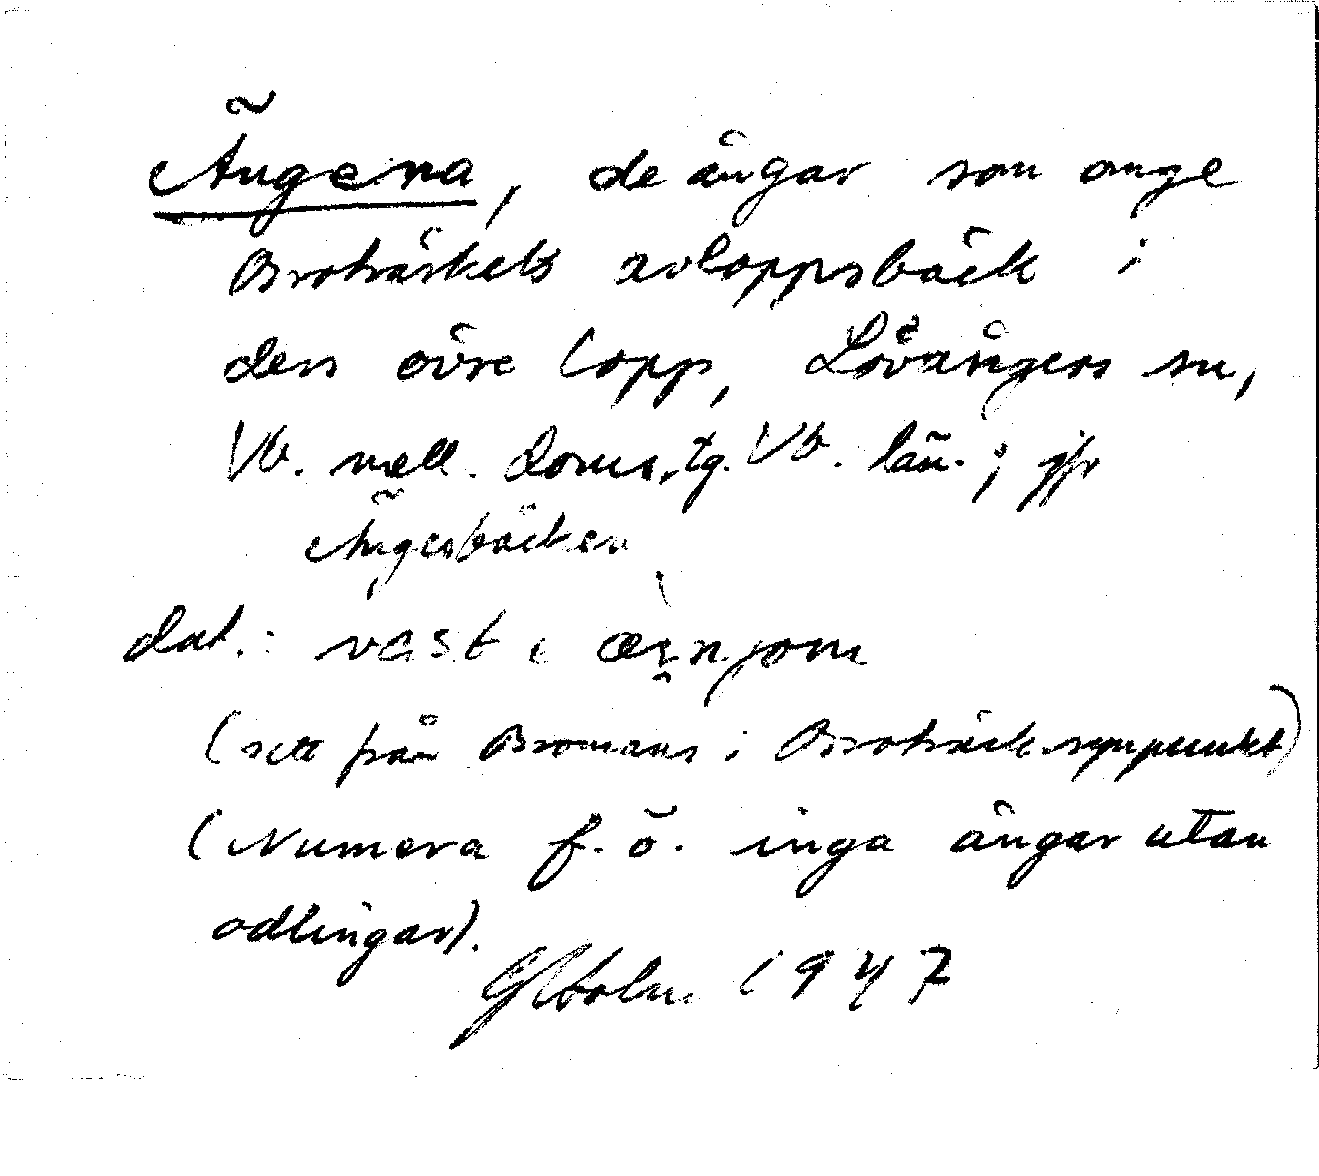 Ängena, de ängar som omge
Broträskets avloppsbäck i
den övre lopp, Lövångers sn,
Vb. mell. doms. tg. Vb. län; jfr
Ängesbäcken
dat.: væst i æŋnjom
(sett från Bromans i Broträsk synpunkt)
(Numera f. ö. inga ängar utan
odlingar).
G Holm 1947